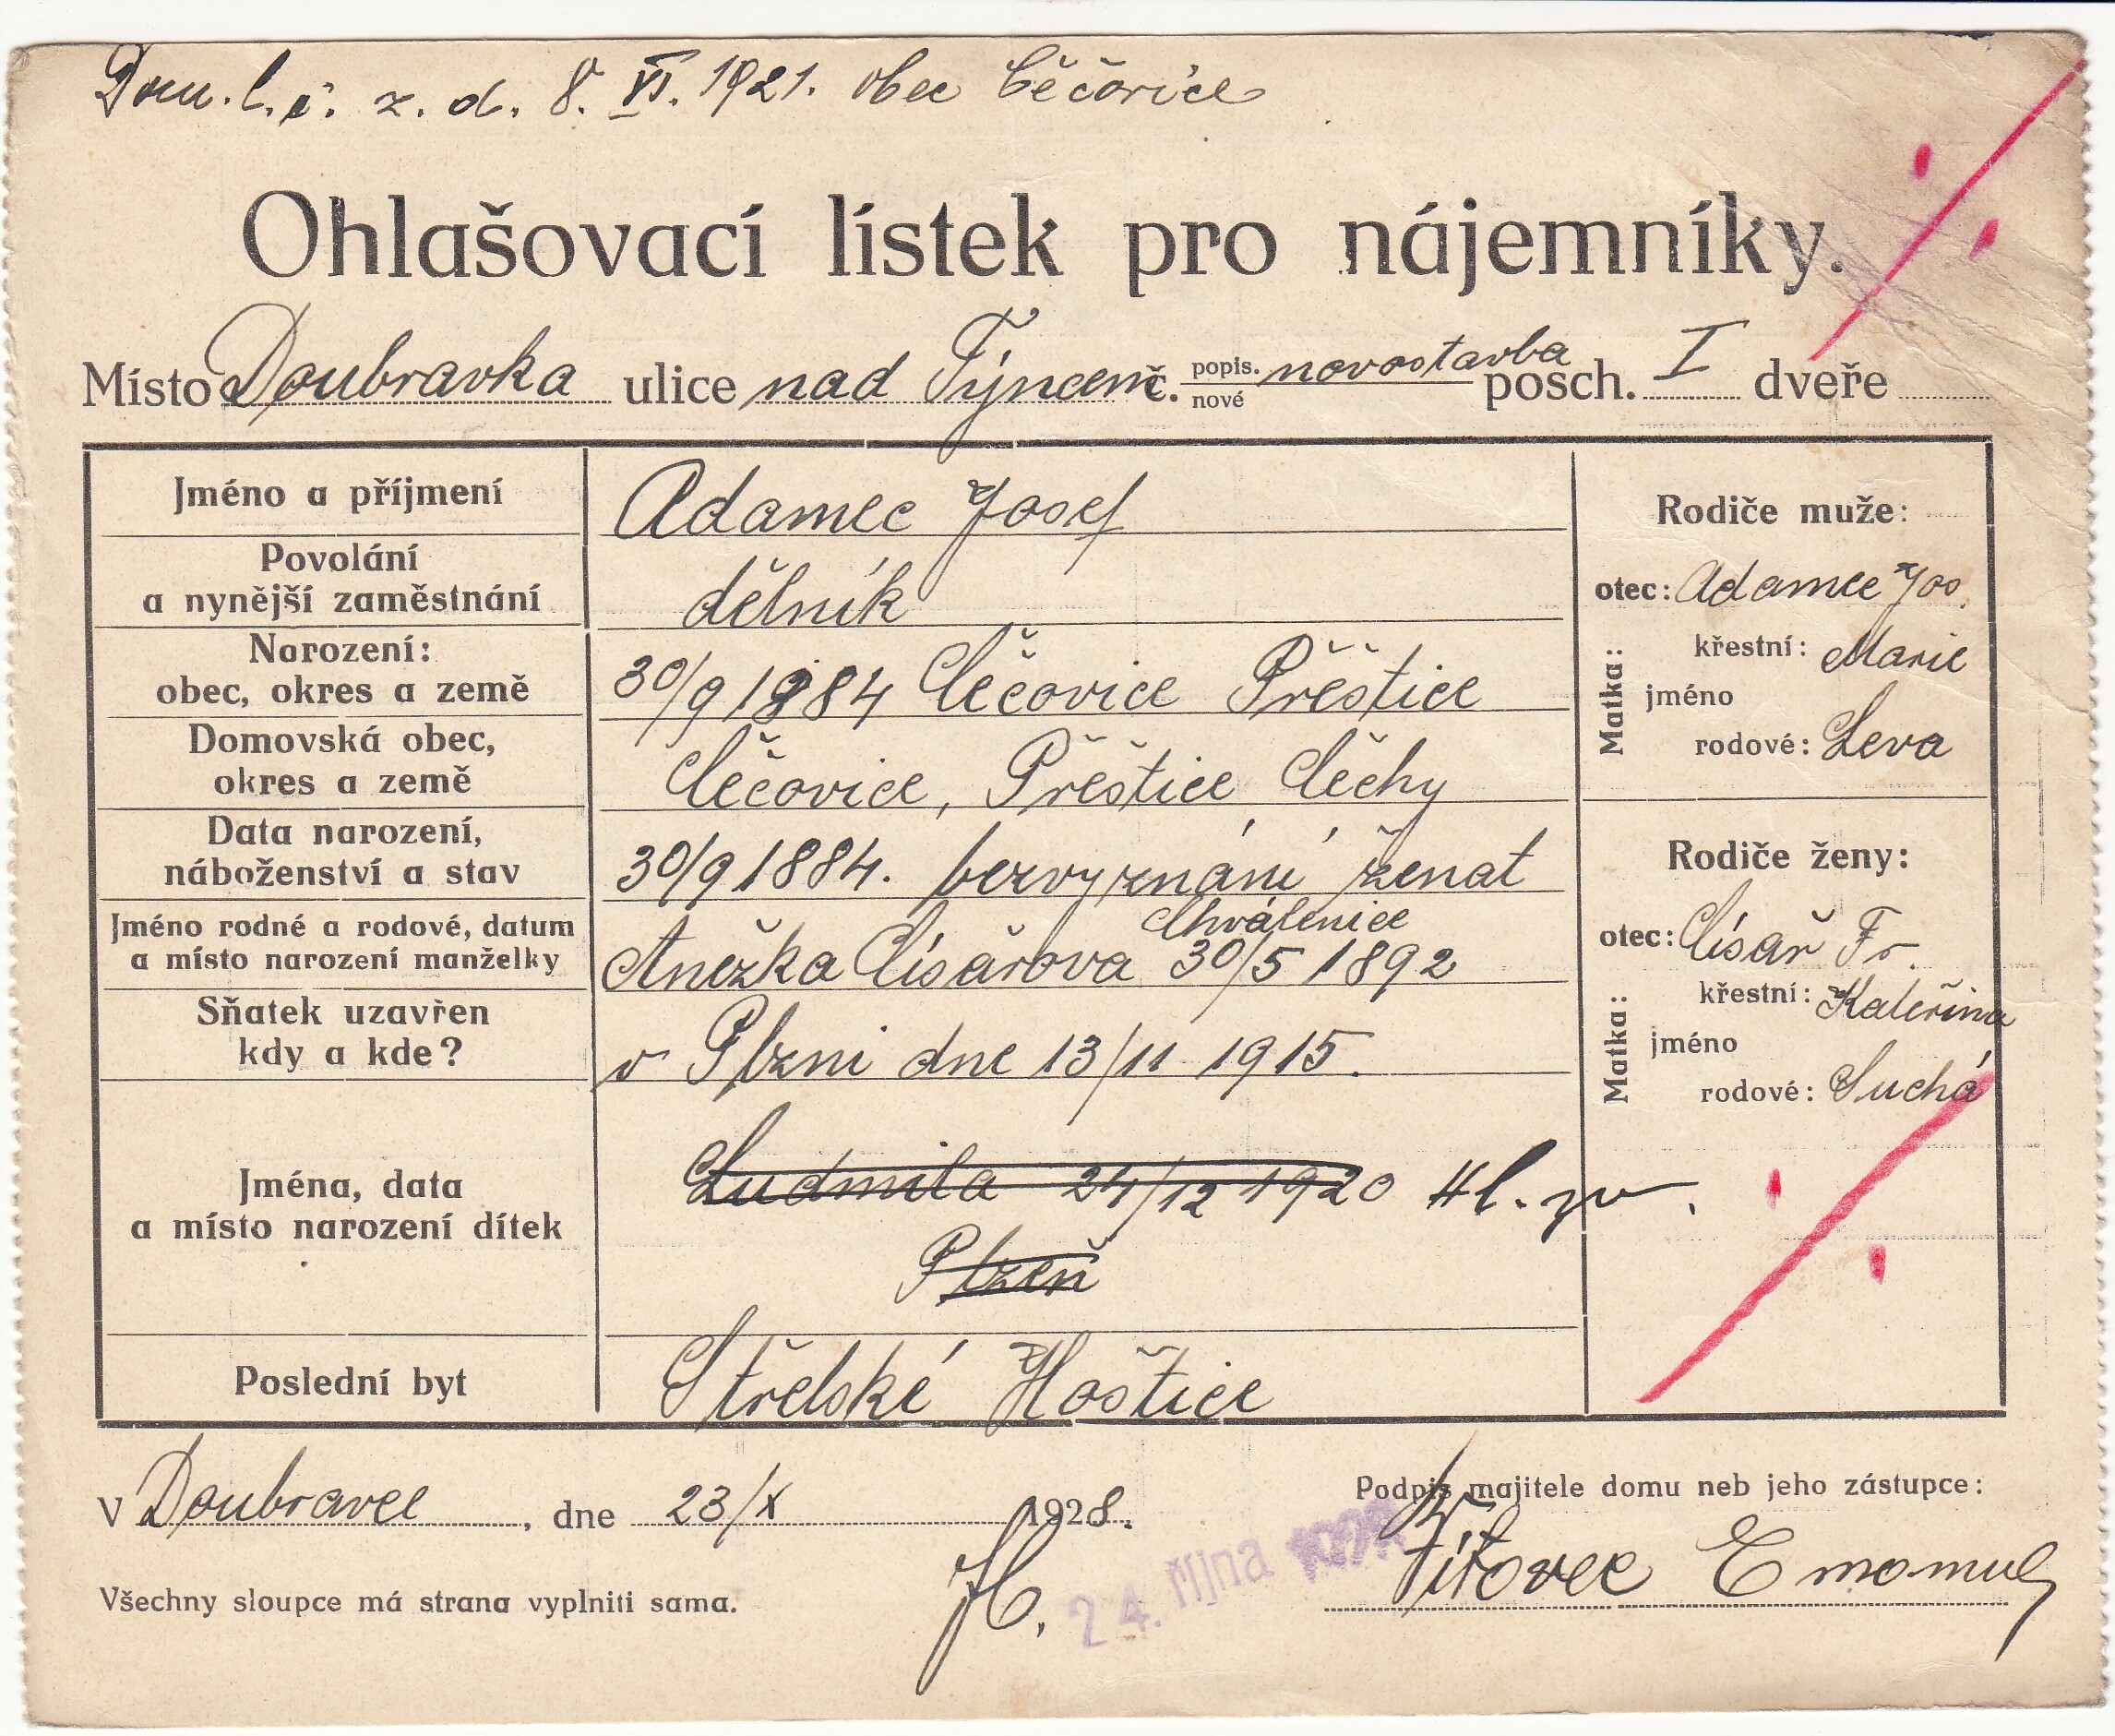 Dom. l. č. z. d. 8. VI. 1921. obec Čečovice
Ohlašovací lístek pro nájemníky.
Místo Doubravka ulice nad Týncem č. popis. nové novostavba posch. I dveře
Jméno a příjmení Adamec Josef
Povolání a nynější zaměstnání dělník
Narození: obec, okres a země 30/9 1884 Čečovice Přeštice
Domovská obec, okres a země Čečovice, Přeštice Čechy
Data narození, náboženství a stav 30/9 1884. bezvyznání ženat
Jméno rodné a rodové, datum a místo narození manželky Anežka Císařova 30/5 1892 Chválenice
Sňatek uzavřen kdy a kde? v Plzni dne 13/11 1915.
Jména, data a místo narození dítek Ludmila 24/12 1920
Plzeň
Poslední byt Střelské Hoštice
Rodiče muže:
otec: Adamec Jos.
Matka: jméno křestní: Marie
rodové: Leva
Rodiče ženy:
otec: Císař Fr.
Matka: jméno křestní: Kateřina
rodové: Suchá
V Doubravce, dne 23/X 1928.
Podpis majitele domu neb jeho zástupce:
Vítovec Emanuel
24. října
Všechny sloupce má strana vyplniti sama.